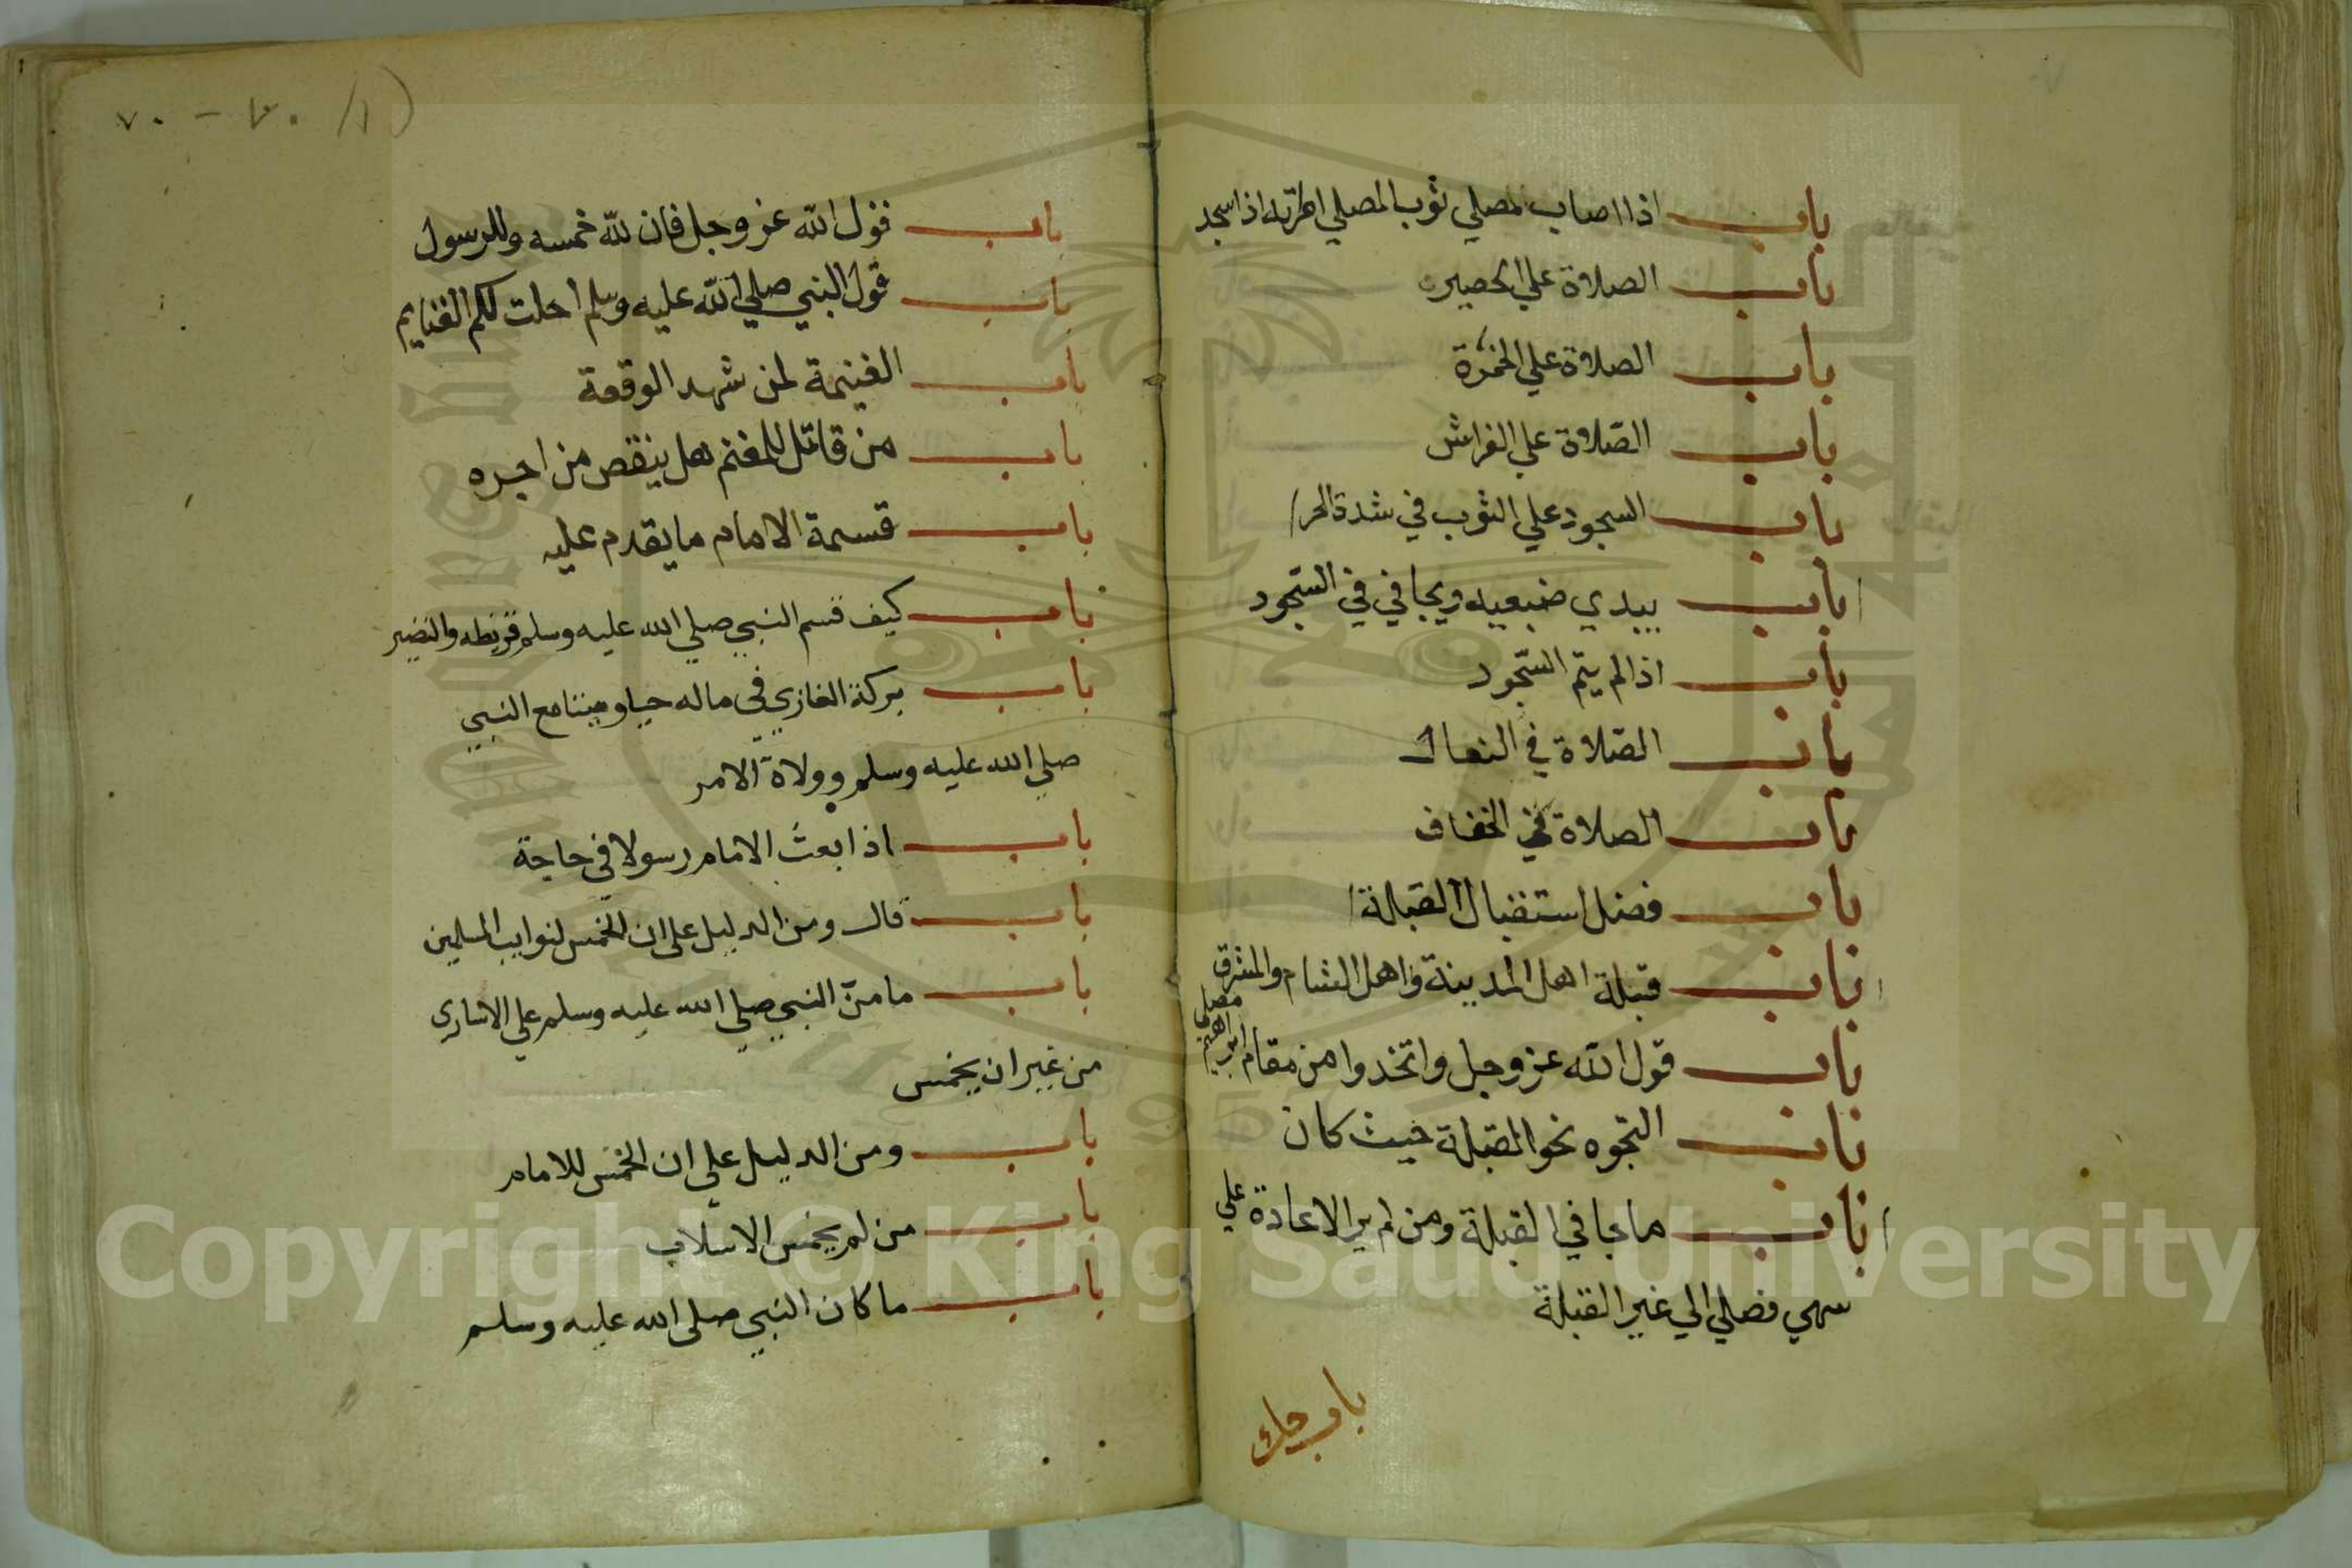 باب اذا اصاب المصلي ثوب المصلي امرته اذا سجد
باب الصلاة علي الحصير
باب الصلاة علي الخمرة
باب الصلاة علي الفراش
باب السجود علي الثوب في شدة الحر
باب يبدي ضبعيه ويجافي في السجود
باب اذا لم يتم السجود
باب الصلاة في النعال
باب الصلاة في الخفاف
باب فضل استقبال القبلة
باب قبلة اهل المدينة واهل الشام والمشرق
باب قول الله عز وجل واتخذوا من مقام ابراهيم مصلي
باب التوجه نحو القبلة حيث كان
باب ما جا في القبلة ومن لم ير الاعادة علي
سهي فصلي الي غير القبلة
باب حك
٧٠ - ٧٠
باب قول الله عز وجل فان لله خمسه وللرسول
باب قول النبي صلي الله عليه وسلم احلت لكم الغنايم
باب الغنيمة لمن شهد الوقعة
باب من قاتل للمغنم هل ينقص من اجره
باب قسمة الامام ما يقدم عليه
باب كيف قسم النبي صلي الله عليه وسلم قريظه والنضير
باب بركة الغازي في ماله حيا وميتا مع النبي
صلي الله عليه وسلم وولاة الامر
باب اذا بعث الامام رسولا في حاجة
باب قال ومن الدليل علي ان الخمس لنوايب المسلمين
باب ما منّ النبي صلي الله عليه وسلم علي الاساري
من غير ان يخمس
باب ومن الدليل علي ان الخمس للامام
باب من لم يخمس الاسلاب
باب ما كان النبي صلي الله عليه وسلم
Copyright © King Saud University